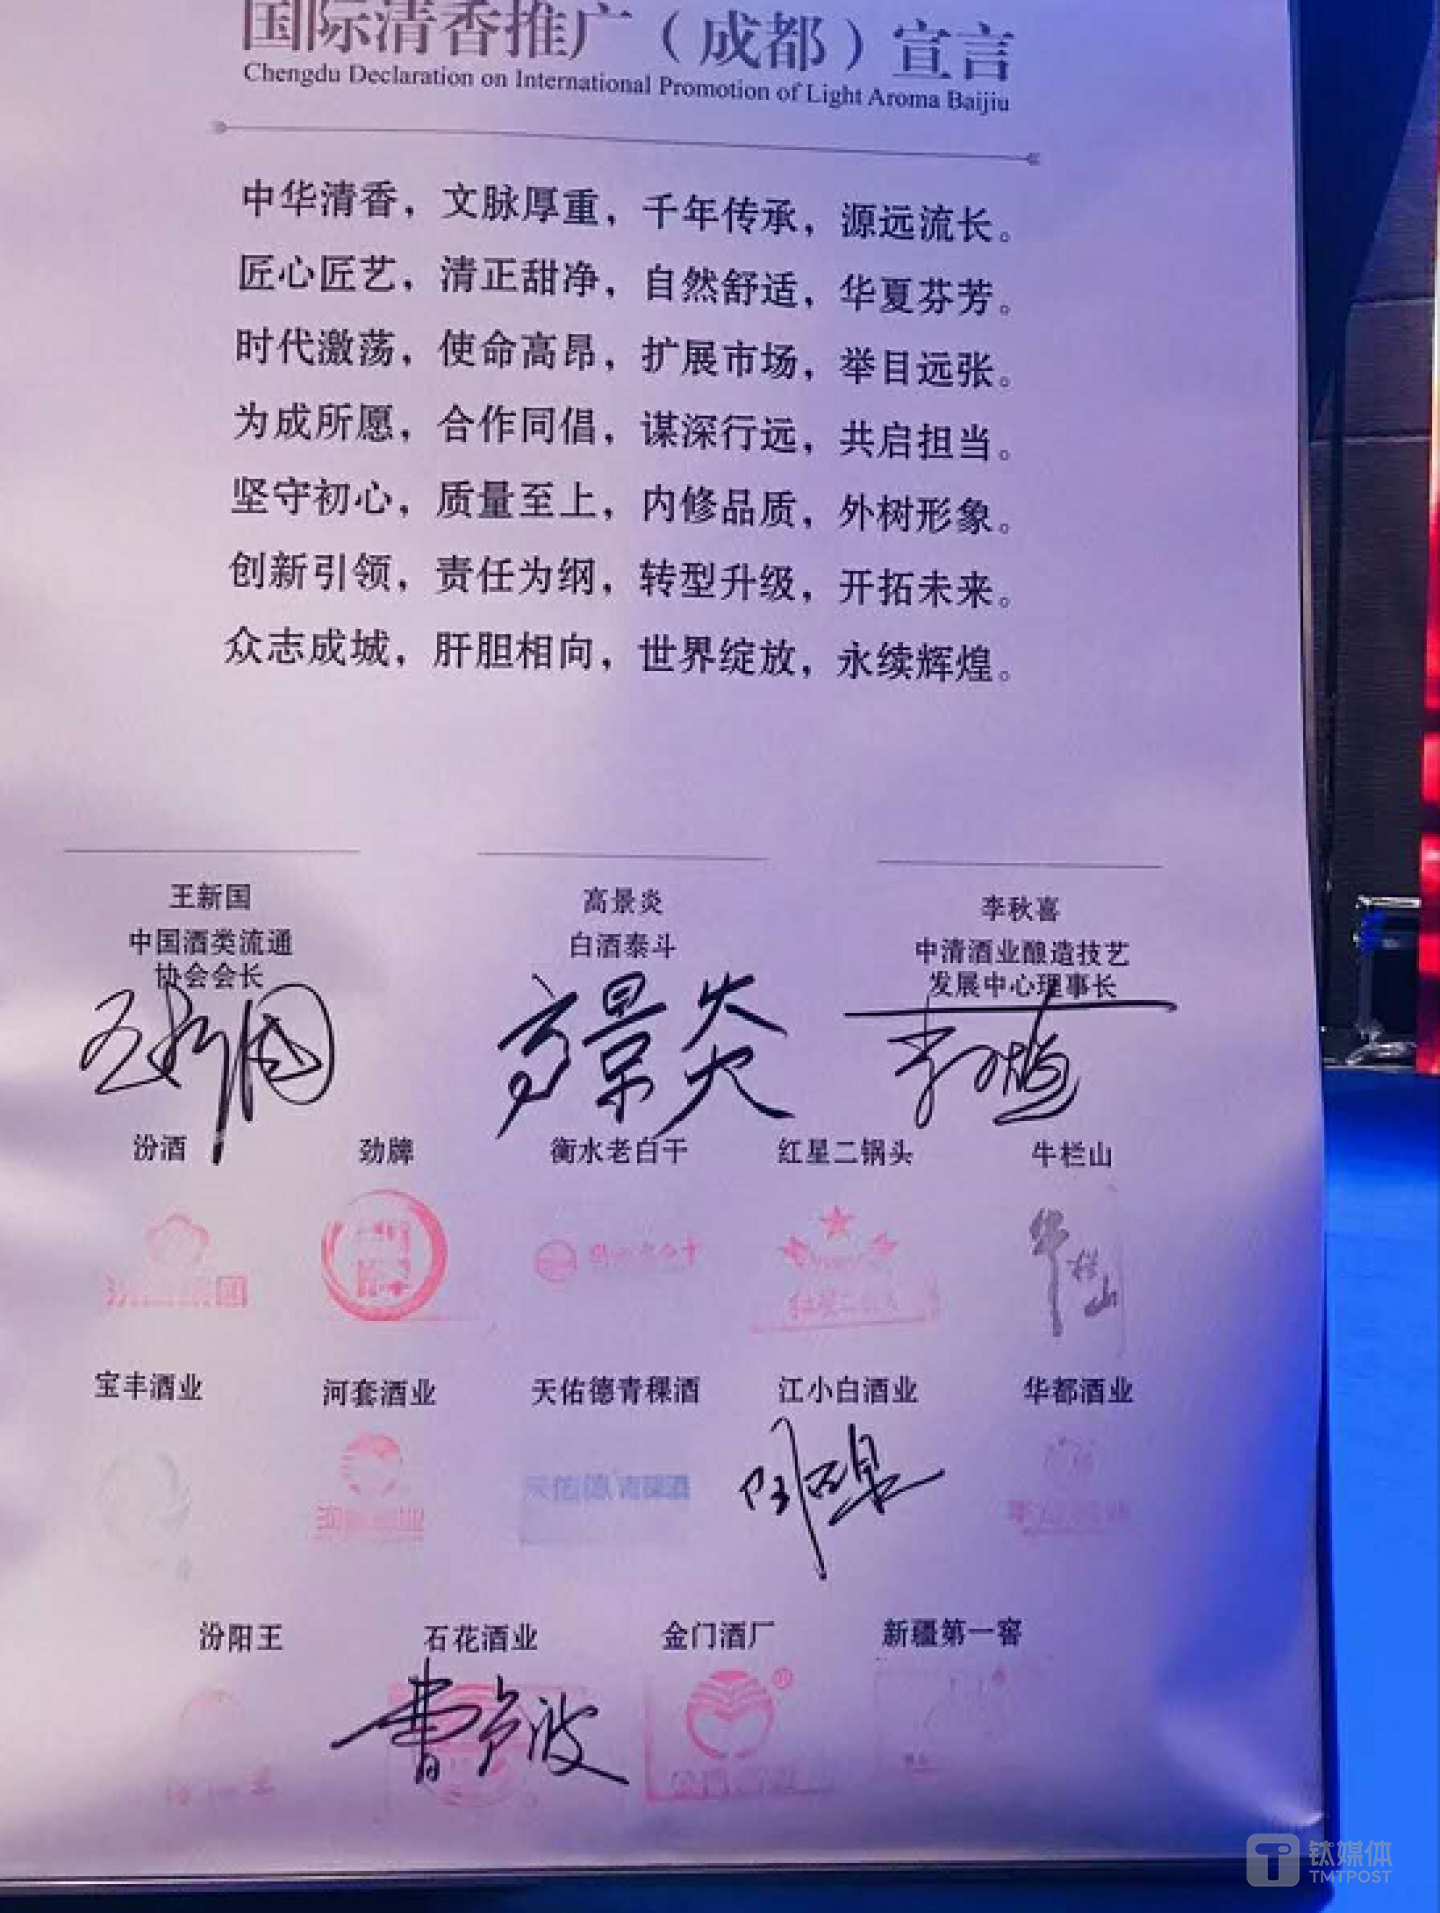 国际清香推广（成都）宣言
Chengdu Declaration on International Promotion of Light Aroma Baijiu
中华清香，文脉厚重，千年传承，源远流长。
匠心匠艺，清正甜净，自然舒适，华夏芬芳。
时代激荡，使命高昂，扩展市场，举目远张。
为成所愿，合作同倡，谋深行远，共启担当。
坚守初心，质量至上，内修品质，外树形象。
创新引领，责任为纲，转型升级，开拓未来。
众志成城，肝胆相向，世界绽放，永续辉煌。
王新国 高景炎 李秋喜
中国酒类流通 白酒泰斗 中清酒业酿造技艺
协会会长 发展中心理事长
王新国 高景炎
汾酒 劲牌 衡水老白干 红星二锅头 牛栏山
红星二锅头 牛栏山
宝丰酒业 河套酒业 天佑德青稞酒 江小白酒业 华都酒业
天佑德青稞酒
汾阳王 石花酒业 金门酒厂 新疆第一窖
钛媒体
TMTPOST